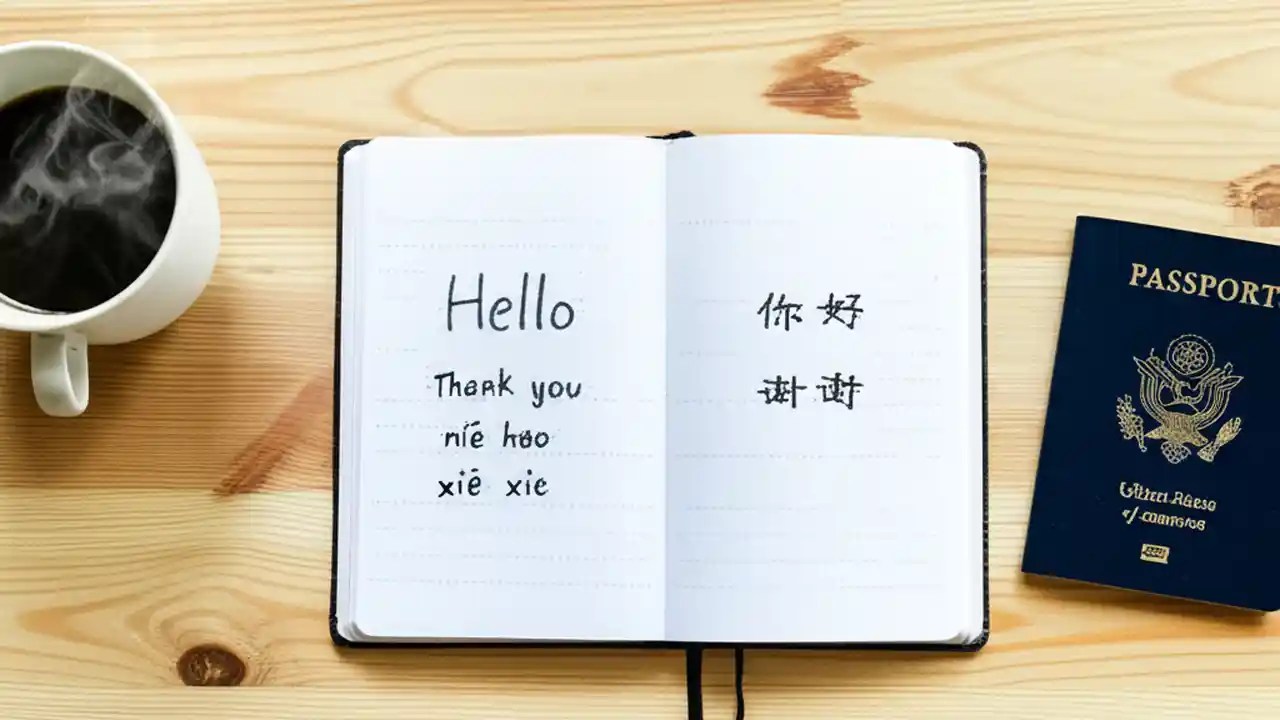 Hello
Thank you
niē hao
xiē xie
你好
PASSPORT